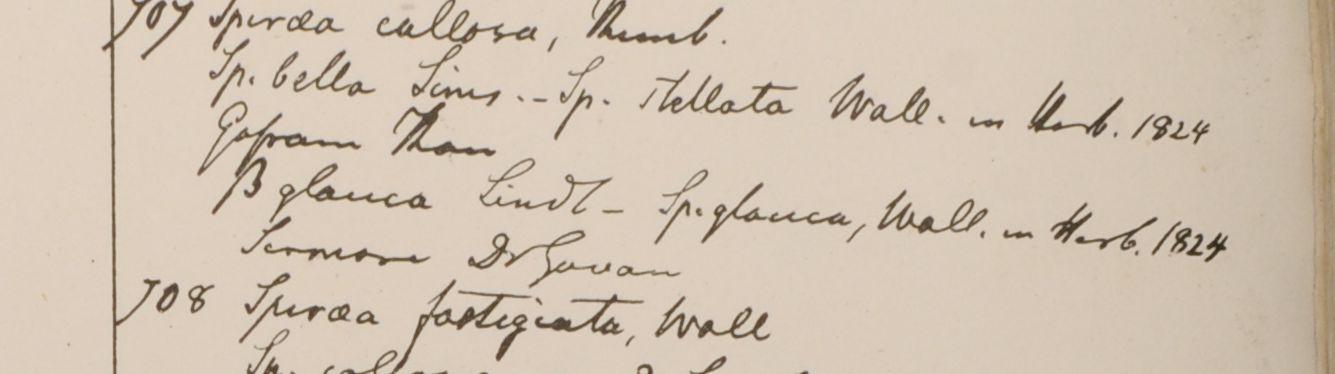 707 Spiræa callosa, Thunb.
Sp. bella Sims. - Sp. stellata Wall. in Herb. 1824
Gossam Than
β glauca Lindl - Sp. glauca, Wall. in Herb. 1824
Sermore Dr Govan
708 Spiræa fastigiata, Wall
Sp.